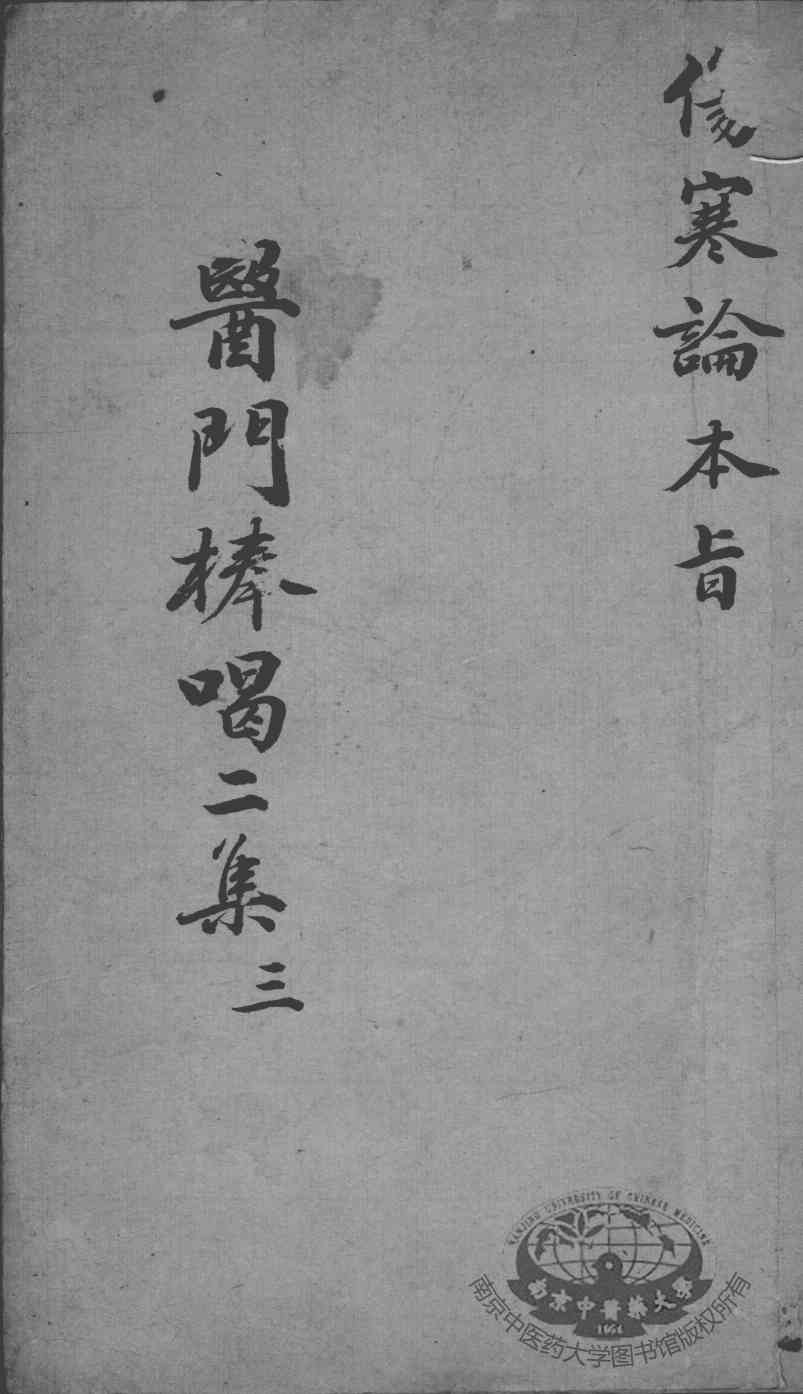 傷寒論本旨
醫門棒喝二集 三
NANJING UNIVERSITY OF CHINESE MEDICINE
南京中醫藥大學
1954
南京中医药大学图书馆版权所有